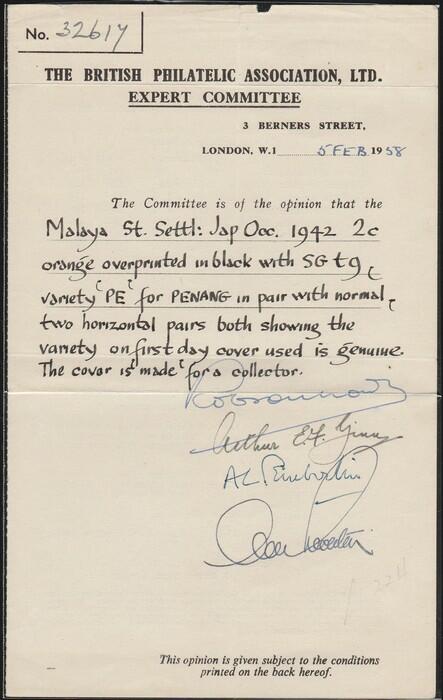 No. 32617
THE BRITISH PHILATELIC ASSOCIATION, LTD.
EXPERT COMMITTEE
3 BERNERS STREET,
LONDON, W.1 5 FEB 1958
The Committee is of the opinion that the
Malaya St. Settl: Jap Occ. 1942 2c
orange overprinted in black with SG t9,
variety 'PE' for PENANG in pair with normal,
two horizontal pairs both showing the
variety on first day cover used is genuine.
The cover is 'made' for a collector.
Arthur E.F.
This opinion is given subject to the conditions
printed on the back hereof.